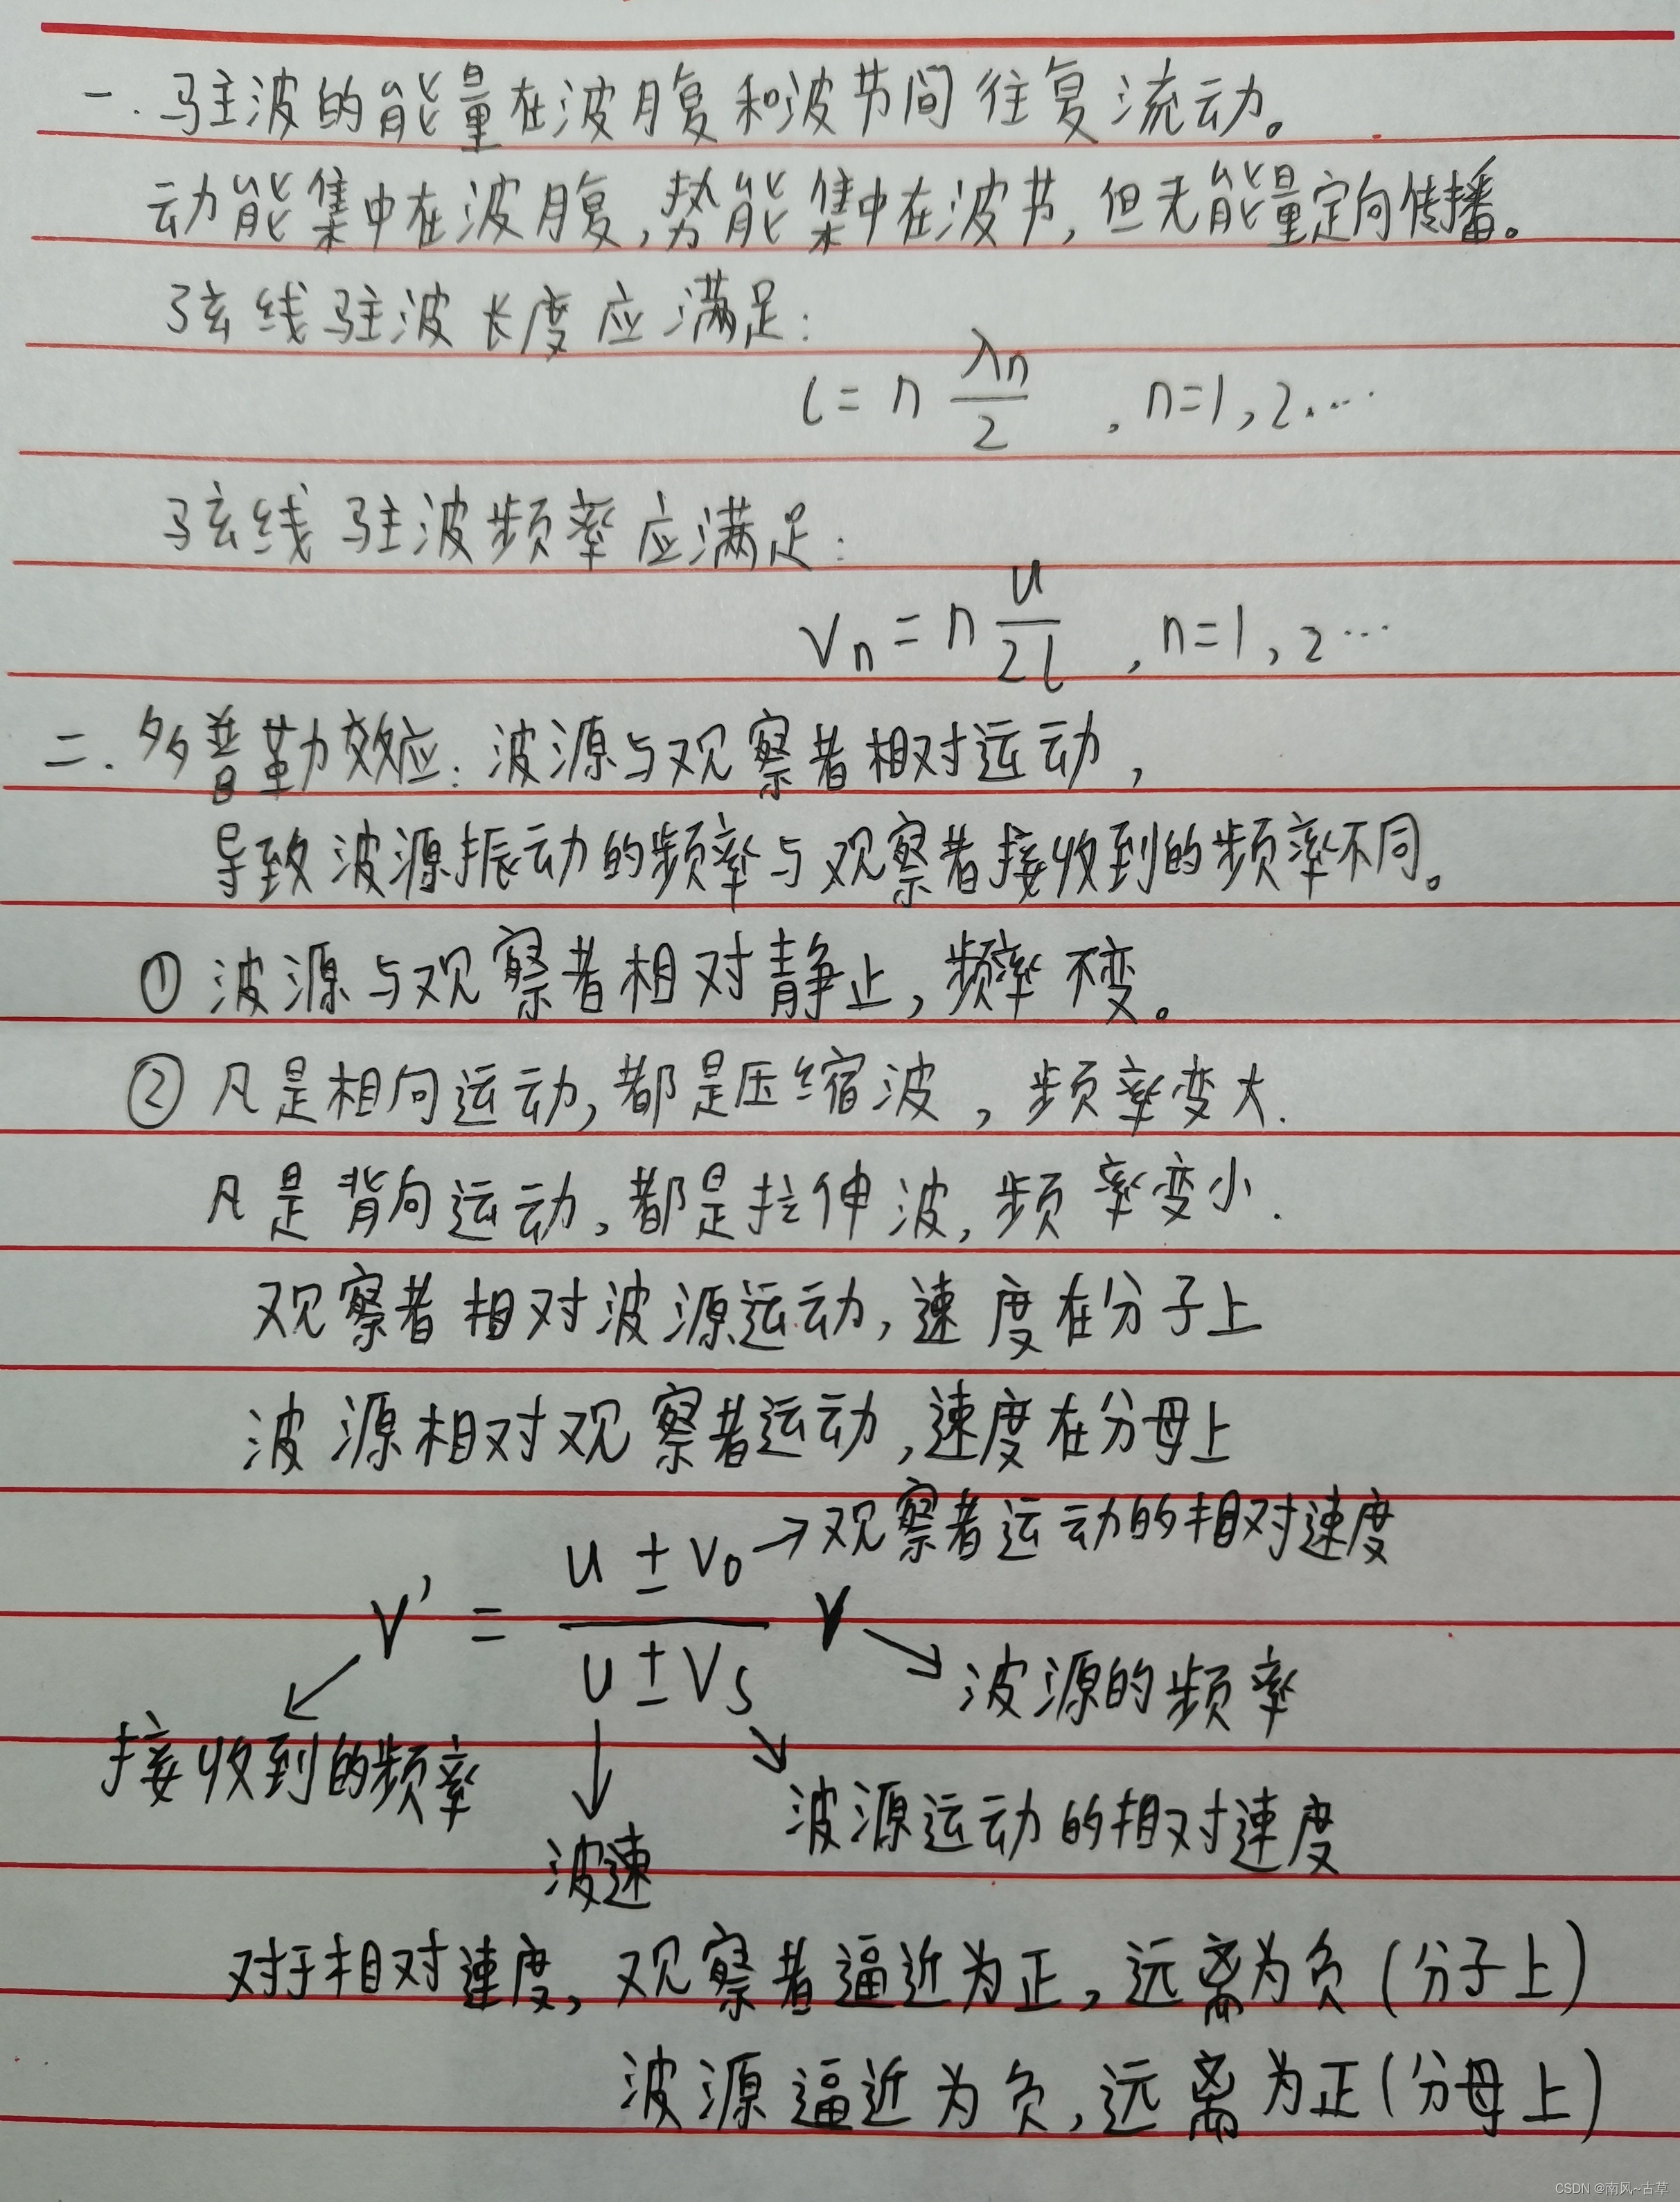 一.驻波的能量在波腹和波节间往复流动。
动能集中在波腹,势能集中在波节,但无能量定向传播。
弦线驻波长度应满足:
l = n λn/2 , n=1,2....
弦线驻波频率应满足:
νn = n u/2l , n=1,2...
二.多普勒效应:波源与观察者相对运动,
导致波源振动的频率与观察者接收到的频率不同。
①波源与观察者相对静止,频率不变。
②凡是相向运动,都是压缩波,频率变大.
凡是背向运动,都是拉伸波,频率变小.
观察者相对波源运动,速度在分子上
波源相对观察者运动,速度在分母上
u ± v₀ →观察者运动的相对速度
ν' = ν
u ± Vs
波源的频率
接收到的频率
波源运动的相对速度
波速
对于相对速度,观察者逼近为正,远离为负(分子上)
波源逼近为负,远离为正(分母上)
CSDN @南风~古草